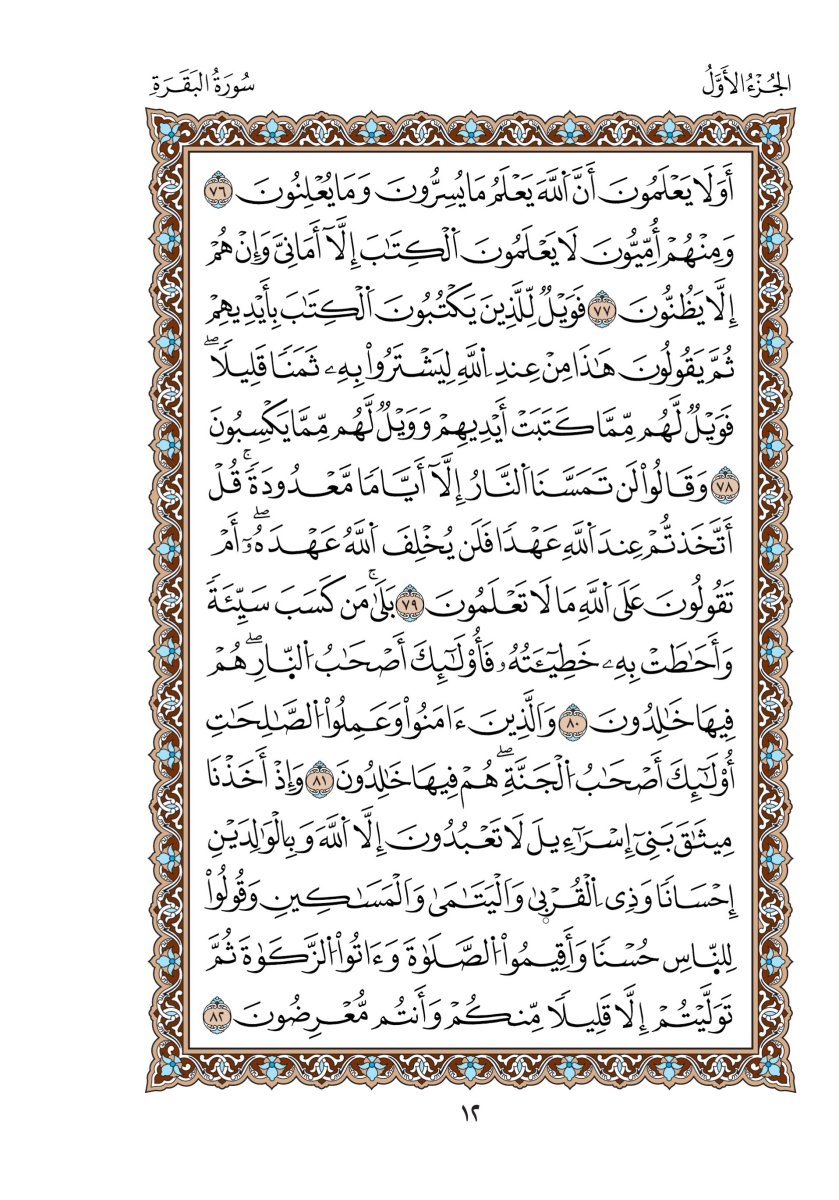 الجُزْءُ الأَوَّلُ
سُورَةُ البَقَرَةِ
أَوَلَا يَعْلَمُونَ أَنَّ ٱللَّهَ يَعْلَمُ مَا يُسِرُّونَ وَمَا يُعْلِنُونَ ٧٦
وَمِنْهُمْ أُمِّيُّونَ لَا يَعْلَمُونَ ٱلْكِتَٰبَ إِلَّآ أَمَانِيَّ وَإِنْ هُمْ
إِلَّا يَظُنُّونَ ٧٧ فَوَيْلٌ لِّلَّذِينَ يَكْتُبُونَ ٱلْكِتَٰبَ بِأَيْدِيهِمْ
ثُمَّ يَقُولُونَ هَٰذَا مِنْ عِندِ ٱللَّهِ لِيَشْتَرُوا۟ بِهِۦ ثَمَنًا قَلِيلًاۖ
فَوَيْلٌ لَّهُم مِّمَّا كَتَبَتْ أَيْدِيهِمْ وَوَيْلٌ لَّهُم مِّمَّا يَكْسِبُونَ
٧٨ وَقَالُوا۟ لَن تَمَسَّنَا ٱلنَّارُ إِلَّآ أَيَّامًا مَّعْدُودَةًۚ قُلْ
أَتَّخَذتُّمْ عِندَ ٱللَّهِ عَهْدًا فَلَن يُخْلِفَ ٱللَّهُ عَهْدَهُۥٓۖ أَمْ
تَقُولُونَ عَلَى ٱللَّهِ مَا لَا تَعْلَمُونَ ٧٩ بَلَىٰۚ مَن كَسَبَ سَيِّئَةً
وَأَحَٰطَتْ بِهِۦ خَطِيٓـَٔتُهُۥ فَأُو۟لَٰٓئِكَ أَصْحَٰبُ ٱلنّ۪ارِۖ هُمْ
فِيهَا خَٰلِدُونَ ٨٠ وَٱلَّذِينَ ءَامَنُوا۟ وَعَمِلُوا۟ ٱلصَّٰلِحَٰتِ
أُو۟لَٰٓئِكَ أَصْحَٰبُ ٱلْجَنَّةِۖ هُمْ فِيهَا خَٰلِدُونَ ٨١ وَإِذْ أَخَذْنَا
مِيثَٰقَ بَنِىٓ إِسْرَٰٓءِيلَ لَا تَعْبُدُونَ إِلَّا ٱللَّهَ وَبِٱلْوَٰلِدَيْنِ
إِحْسَانًا وَذِى ٱلْقُرْب۪ىٰ وَٱلْيَتَٰمَىٰ وَٱلْمَسَٰكِينِ وَقُولُوا۟
لِلنّ۪اسِ حُسْنًا وَأَقِيمُوا۟ ٱلصَّلَوٰةَ وَءَاتُوا۟ ٱلزَّكَوٰةَ ثُمَّ
تَوَلَّيْتُمْ إِلَّا قَلِيلًا مِّنكُمْ وَأَنتُم مُّعْرِضُونَ ٨٢
١٢